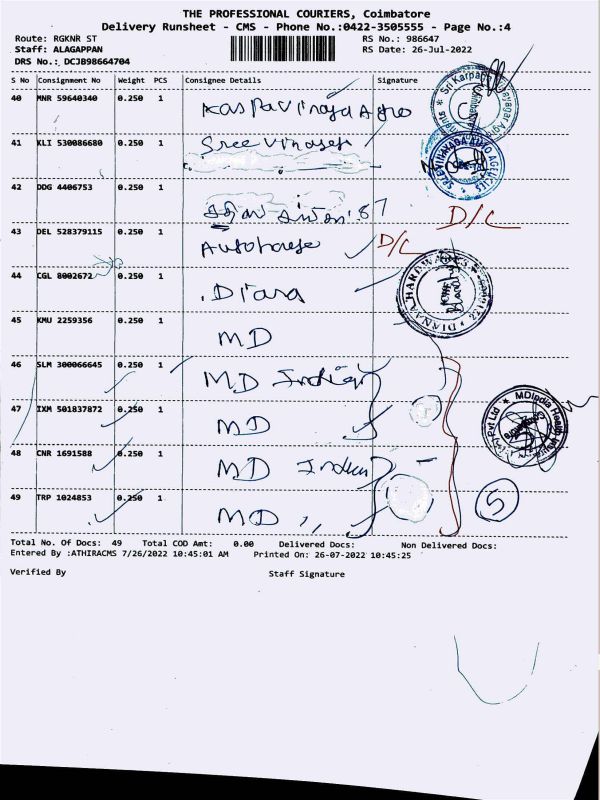 THE PROFESSIONAL COURIERS, Coimbatore
Delivery Runsheet - CMS - Phone No.:0422-3505555 - Page No.:4
Route: RGKNR ST RS No.: 986647
Staff: ALAGAPPAN RS Date: 26-Jul-2022
DRS No.: DCJB98664704
S No Consignment No Weight PCS Consignee Details Signature
40 MNR 59640340 0.250 1
41 KLI 530086680 0.250 1
42 DDG 4406753 0.250 1
87 D/C
43 DEL 528379115 0.250 1
Autohouse D/C
44 CGL 8002672 0.250 1
Diana
45 KMU 2259356 0.250 1
MD
46 SLM 300066645 0.250 1
MD India
47 IXM 501837872 0.250 1
MD
48 CNR 1691588 0.250 1
MD India
49 TRP 1024853 0.250 1
MD ,,
5
Total No. Of Docs: 49 Total COD Amt: 0.00 Delivered Docs: Non Delivered Docs:
Entered By :ATHIRACMS 7/26/2022 10:45:01 AM Printed On: 26-07-2022 10:45:25
Verified By Staff Signature